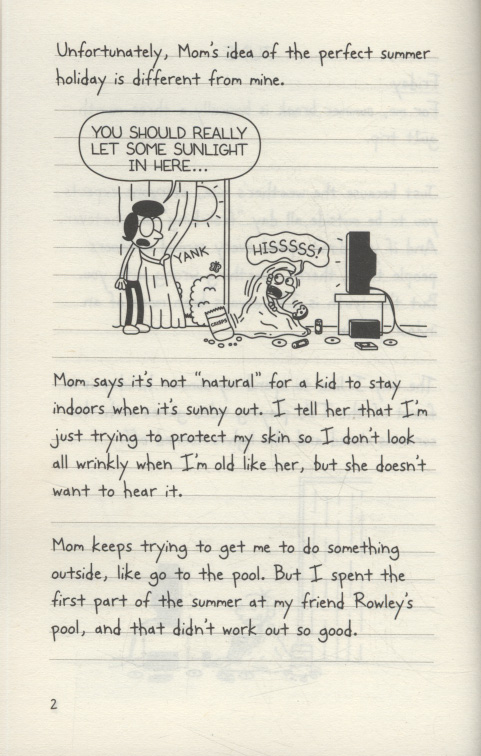 Unfortunately, Mom's idea of the perfect summer
holiday is different from mine.
YOU SHOULD REALLY
LET SOME SUNLIGHT
IN HERE...
YANK
HISSSSS!
CRISPS
Mom says it's not "natural" for a kid to stay
indoors when it's sunny out. I tell her that I'm
just trying to protect my skin so I don't look
all wrinkly when I'm old like her, but she doesn't
want to hear it.
Mom keeps trying to get me to do something
outside, like go to the pool. But I spent the
first part of the summer at my friend Rowley's
pool, and that didn't work out so good.
2